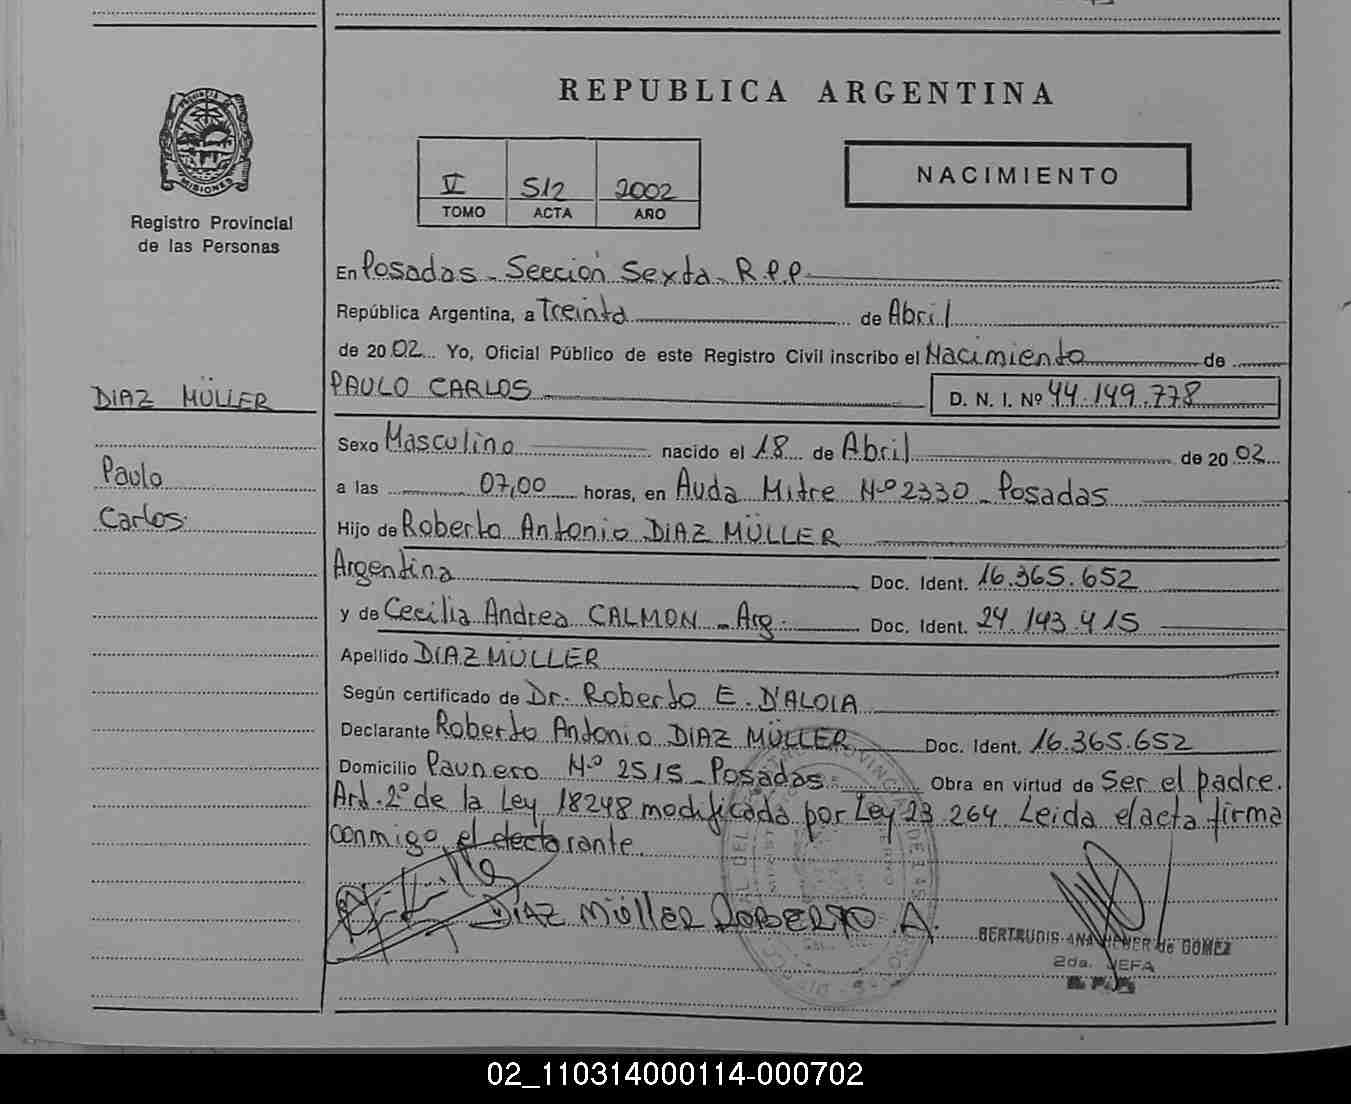 PROVINCIA DE
MISIONES
Registro Provincial
de las Personas
DIAZ MÜLLER
Paulo
Carlos
REPUBLICA ARGENTINA
V 512 2002
TOMO ACTA AÑO
NACIMIENTO
En Posadas - Sección Sexta - R.P.P.
República Argentina, a Treinta de Abril
de 2002 Yo, Oficial Público de este Registro Civil inscribo el Nacimiento de
PAULO CARLOS D. N. I. Nº 44.149.778
Sexo Masculino nacido el 18 de Abril de 2002
a las 07,00 horas, en Auda Mitre Nº 2330 - Posadas
Hijo de Roberto Antonio DIAZ MÜLLER
Argentina Doc. Ident. 16.365.652
y de Cecilia Andrea CALMON - Arg. Doc. Ident. 24.143.415
Apellido DIAZ MÜLLER
Según certificado de Dr. Roberto E. D'ALOIA
Declarante Roberto Antonio DIAZ MÜLLER Doc. Ident. 16.365.652
Domicilio Paunero Nº 2515 - Posadas Obra en virtud de Ser el padre.
Art. 2º de la Ley 18248 modificada por Ley 23.264 Leida el acta firma
conmigo el declarante.
DIAZ MÜLLER ROBERTO A.
GERTRUDIS ANA de GOMEZ
2da. JEFA
02_110314000114-000702